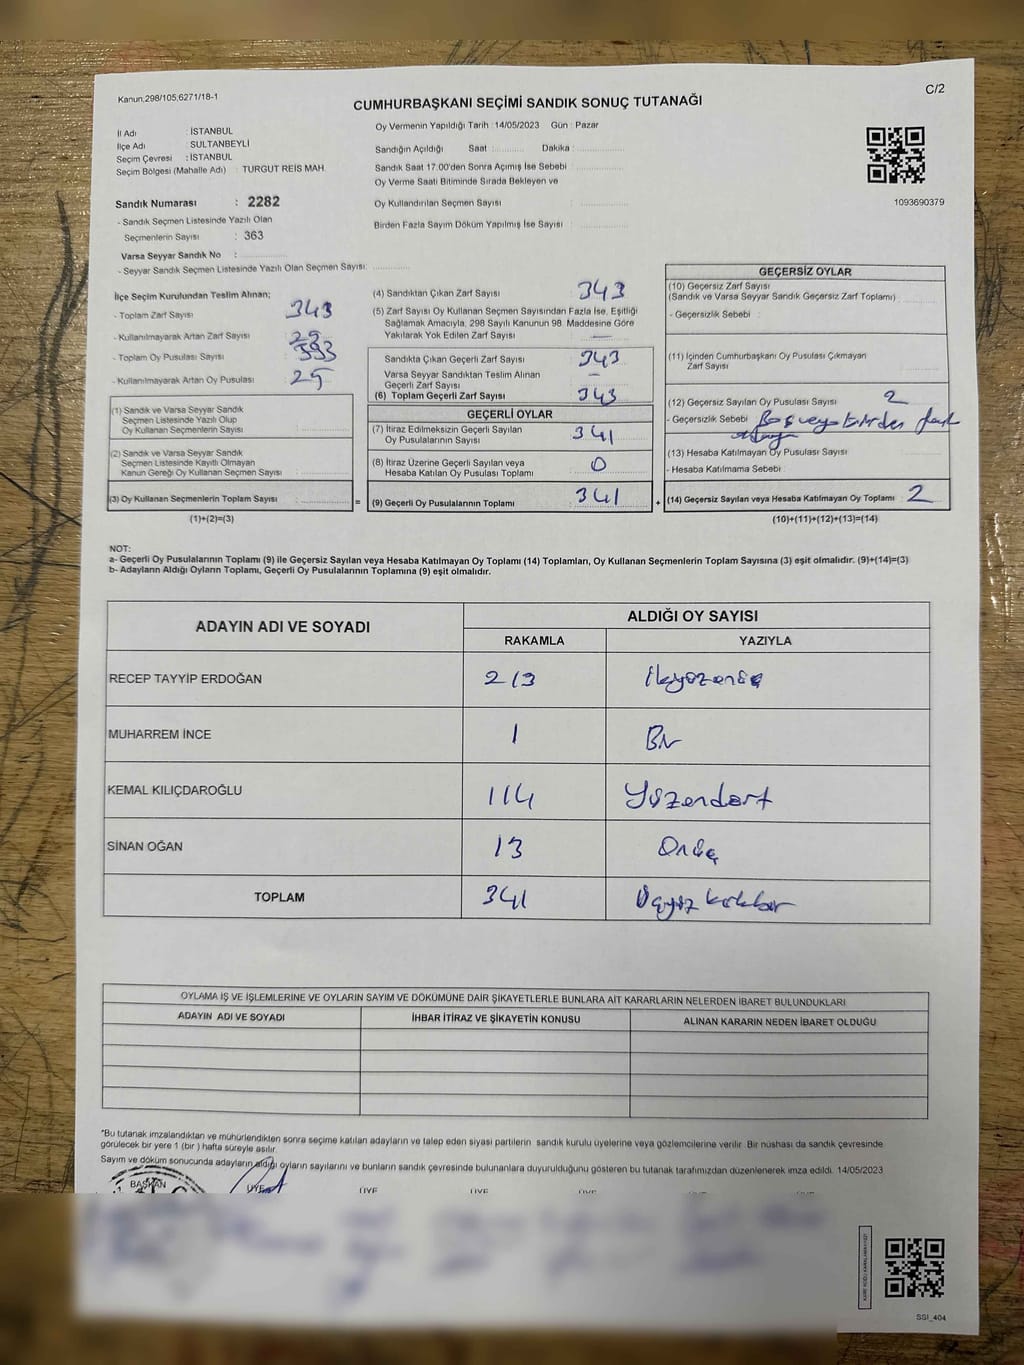 Kanun,298/105,6271/18-1
C/2
CUMHURBAŞKANI SEÇİMİ SANDIK SONUÇ TUTANAĞI
İl Adı : İSTANBUL
İlçe Adı : SULTANBEYLİ
Seçim Çevresi : İSTANBUL
Seçim Bölgesi (Mahalle Adı) : TURGUT REİS MAH.
Sandık Numarası : 2282
- Sandık Seçmen Listesinde Yazılı Olan
Seçmenlerin Sayısı : 363
Varsa Seyyar Sandık No :
- Seyyar Sandık Seçmen Listesinde Yazılı Olan Seçmen Sayısı:
Oy Vermenin Yapıldığı Tarih : 14/05/2023 Gün : Pazar
Sandığın Açıldığı Saat : Dakika :
Sandık Saat 17.00'den Sonra Açımış İse Sebebi
Oy Verme Saati Bitiminde Sırada Bekleyen ve
Oy Kullandırılan Seçmen Sayısı :
Birden Fazla Sayım Döküm Yapılmış İse Sayısı :
1093690379
İlçe Seçim Kurulundan Teslim Alınan;
- Toplam Zarf Sayısı : 343
- Kullanılmayarak Artan Zarf Sayısı :
- Toplam Oy Pusulası Sayısı :
- Kullanılmayarak Artan Oy Pusulası : 25
(1) Sandık ve Varsa Seyyar Sandık
Seçmen Listesinde Yazılı Olup
Oy Kullanan Seçmenlerin Sayısı :
(2) Sandık ve Varsa Seyyar Sandık
Seçmen Listesinde Kayıtlı Olmayan
Kanun Gereği Oy Kullanan Seçmen Sayısı :
(3) Oy Kullanan Seçmenlerin Toplam Sayısı : =
(1)+(2)=(3)
(4) Sandıktan Çıkan Zarf Sayısı : 343
(5) Zarf Sayısı Oy Kullanan Seçmen Sayısından Fazla İse, Eşitliği
Sağlamak Amacıyla, 298 Sayılı Kanunun 98. Maddesine Göre
Yakılarak Yok Edilen Zarf Sayısı : —
Sandıkta Çıkan Geçerli Zarf Sayısı : 343
Varsa Seyyar Sandıktan Teslim Alınan
Geçerli Zarf Sayısı : —
(6) Toplam Geçerli Zarf Sayısı : 343
GEÇERLİ OYLAR
(7) İtiraz Edilmeksizin Geçerli Sayılan
Oy Pusulalarının Sayısı : 341
(8) İtiraz Üzerine Geçerli Sayılan veya
Hesaba Katılan Oy Pusulası Toplamı : 0
(9) Geçerli Oy Pusulalarının Toplamı : 341 +
GEÇERSİZ OYLAR
(10) Geçersiz Zarf Sayısı
(Sandık ve Varsa Seyyar Sandık Geçersiz Zarf Toplamı) :
- Geçersizlik Sebebi :
(11) İçinden Cumhurbaşkanı Oy Pusulası Çıkmayan
Zarf Sayısı :
(12) Geçersiz Sayılan Oy Pusulası Sayısı : 2
- Geçersizlik Sebebi : Boş veya birden fazla
(13) Hesaba Katılmayan Oy Pusulası Sayısı :
- Hesaba Katılmama Sebebi :
(14) Geçersiz Sayılan veya Hesaba Katılmayan Oy Toplamı : 2
(10)+(11)+(12)+(13)=(14)
NOT:
a- Geçerli Oy Pusulalarının Toplamı (9) ile Geçersiz Sayılan veya Hesaba Katılmayan Oy Toplamı (14) Toplamları, Oy Kullanan Seçmenlerin Toplam Sayısına (3) eşit olmalıdır. (9)+(14)=(3)
b- Adayların Aldığı Oyların Toplamı, Geçerli Oy Pusulalarının Toplamına (9) eşit olmalıdır.
ADAYIN ADI VE SOYADI
ALDIĞI OY SAYISI
RAKAMLA YAZIYLA
RECEP TAYYİP ERDOĞAN 213 İkiyüzonüç
MUHARREM İNCE 1 Bir
KEMAL KILIÇDAROĞLU 114 Yüzondört
SİNAN OĞAN 13 Onüç
TOPLAM 341 Üçyüz kırkbir
OYLAMA İŞ VE İŞLEMLERİNE VE OYLARIN SAYIM VE DÖKÜMÜNE DAİR ŞİKAYETLERLE BUNLARA AİT KARARLARIN NELERDEN İBARET BULUNDUKLARI
ADAYIN ADI VE SOYADI İHBAR İTİRAZ VE ŞİKAYETİN KONUSU ALINAN KARARIN NEDEN İBARET OLDUĞU
"Bu tutanak imzalandıktan ve mühürlendikten sonra seçime katılan adayların ve talep eden siyasi partilerin sandık kurulu üyelerine veya gözlemcilerine verilir. Bir nüshası da sandık çevresinde
görülecek bir yere 1 (bir ) hafta süreyle asılır.
Sayım ve döküm sonucunda adayların aldığı oyların sayılarını ve bunların sandık çevresinde bulunanlara duyurulduğunu gösteren bu tutanak tarafımızdan düzenlenerek imza edildi. 14/05/2023
BAŞKAN ÜYE ÜYE ÜYE ÜYE ÜYE ÜYE
SSI_404